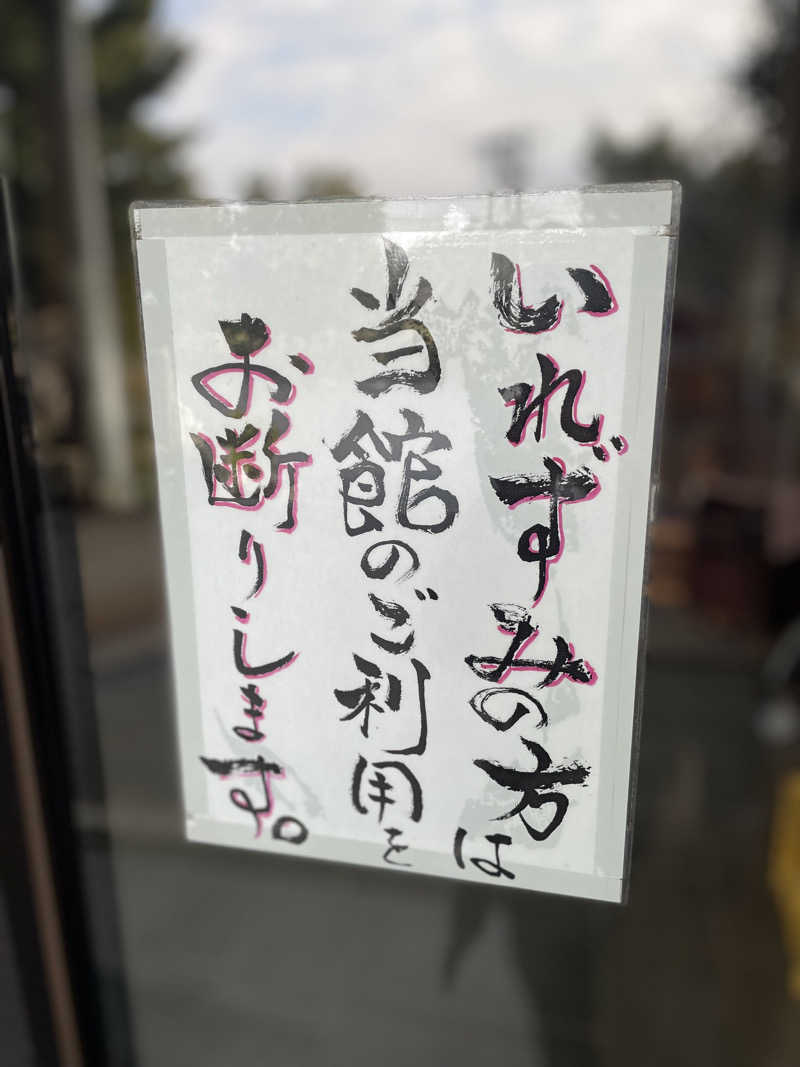 いれずみの方は
当館のご利用を
お断りします。